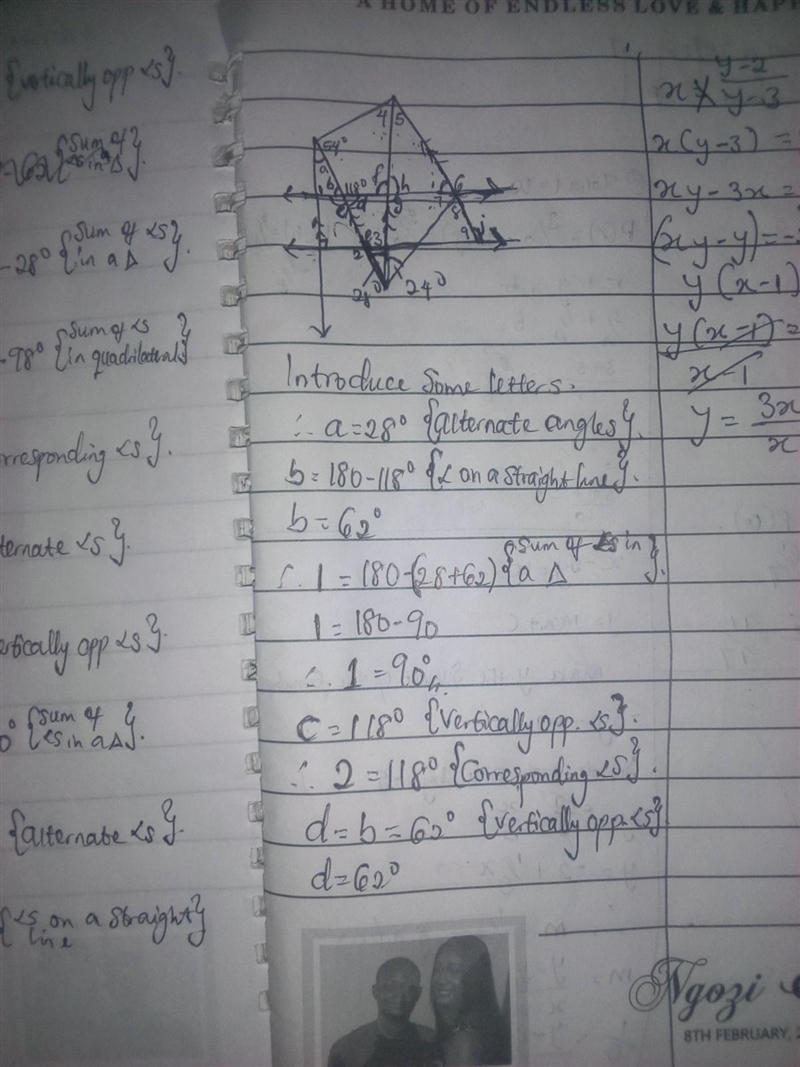 A HOME OF ENDLESS LOVE & HAPP
{vertically opp <s}.
{Sum of <s in Δ}.
-28° {Sum of <s in a Δ}.
-98° {Sum of <s in quadrilateral}
rresponding <s}.
ternate <s}.
ertically opp <s}.
0° {Sum of <s in a Δ}.
{alternate <s}.
{<s on a straight line}
4 5
54°
a
b 118° f h 6
c d g 7 8
1 2 e 3 9 i
28° 24°
Introduce some letters.
∴ a = 28° {alternate angles}.
b = 180 - 118° {< on a straight line}.
b = 62°
∴ 1 = 180 - (28 + 62) {Sum of <s in a Δ}.
1 = 180 - 90
∴ 1 = 90°
c = 118° {Vertically opp. <s}.
∴ 2 = 118° {Corresponding <s}.
d = b = 62° {Vertically opp. <s}
d = 62°
x y-2
y-3
x(y-3) =
xy - 3x =
(xy - y) = -
y(x-1)
y(x-1) =
x-1
y = 3x
x
Ngozi
8TH FEBRUARY, 2